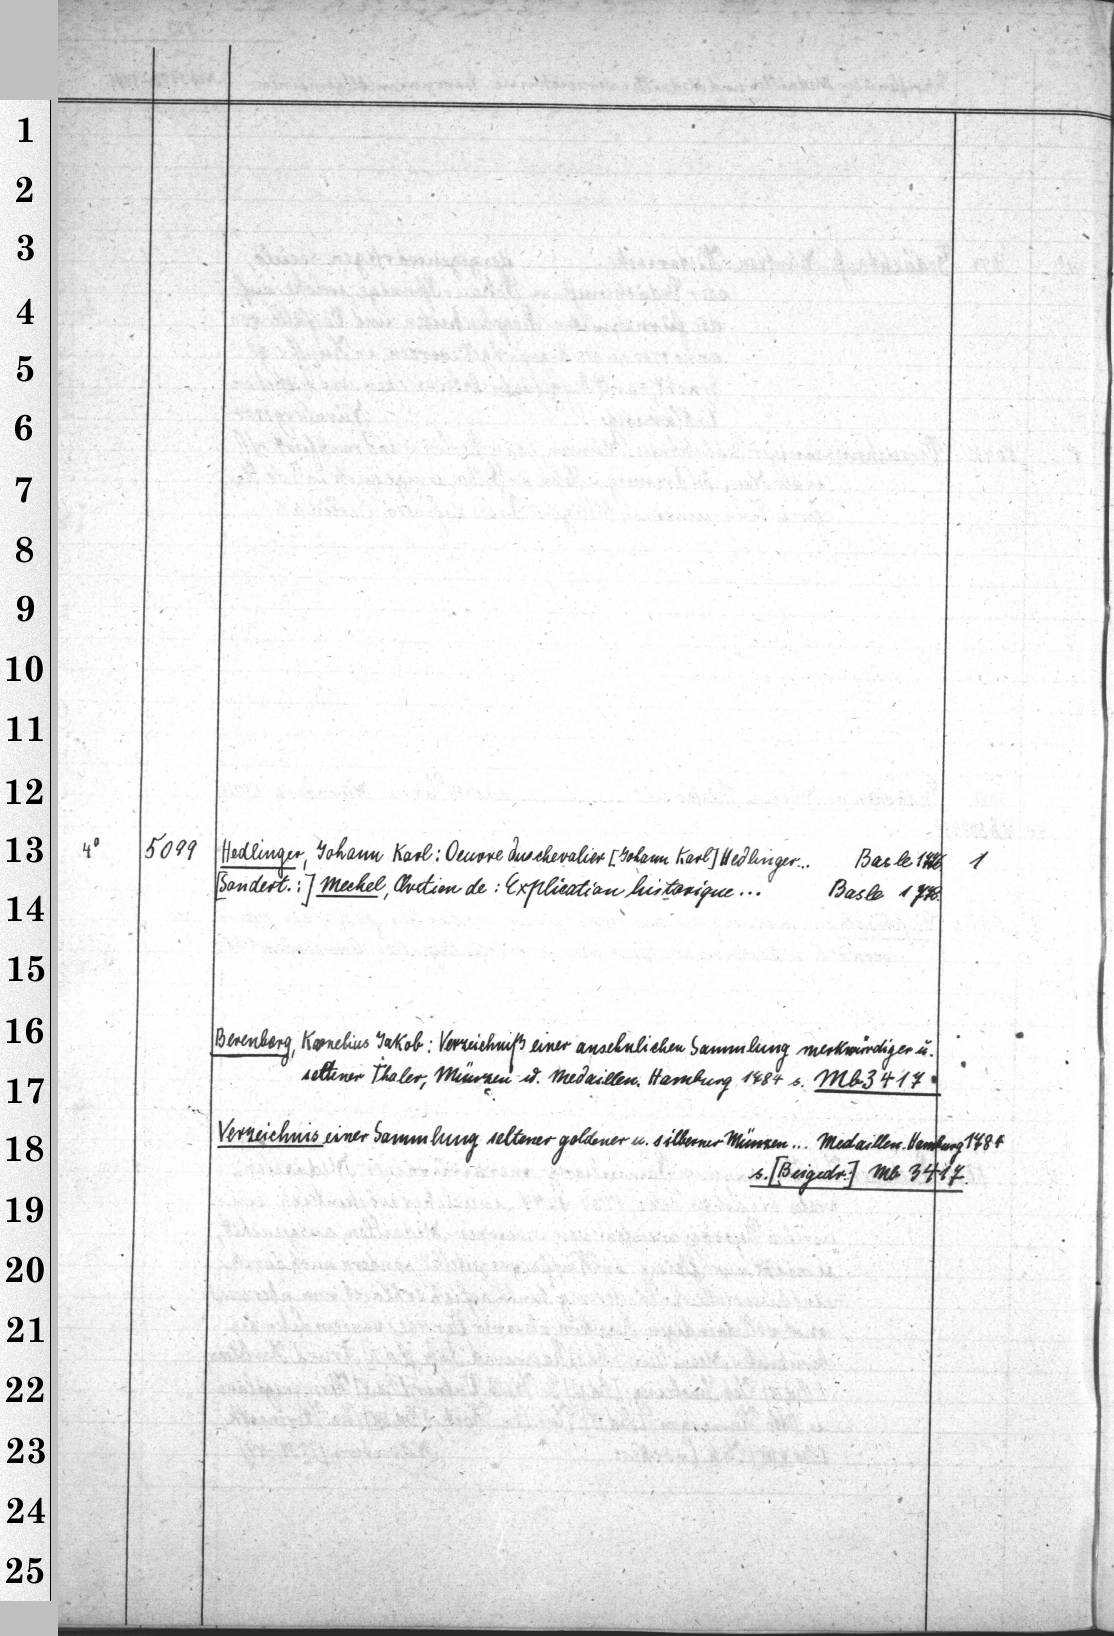 1
2
3
4
5
6
7
8
9
10
11
12
13
14
15
16
17
18
19
20
21
22
23
24
25
4° 5099 Hedlinger, Johann Karl: Oeuvre du chevalier [Johann Karl] Hedlinger... Basle 1776 1
[Sondert.:] Mechel, de: Explication historique... Basle 1778.
Berenberg, Kornelius Jakob: Verzeichniß einer ansehnlichen Sammlung merkwürdiger u.
seltener Thaler, Münzen u. Medaillen. Hamburg 1784 s. Mb 3417.
Verzeichnis einer Sammlung seltener goldener u. silberner Münzen... Medaillen. Hamburg 1784
s. [Beigedr.] Mb 3417.